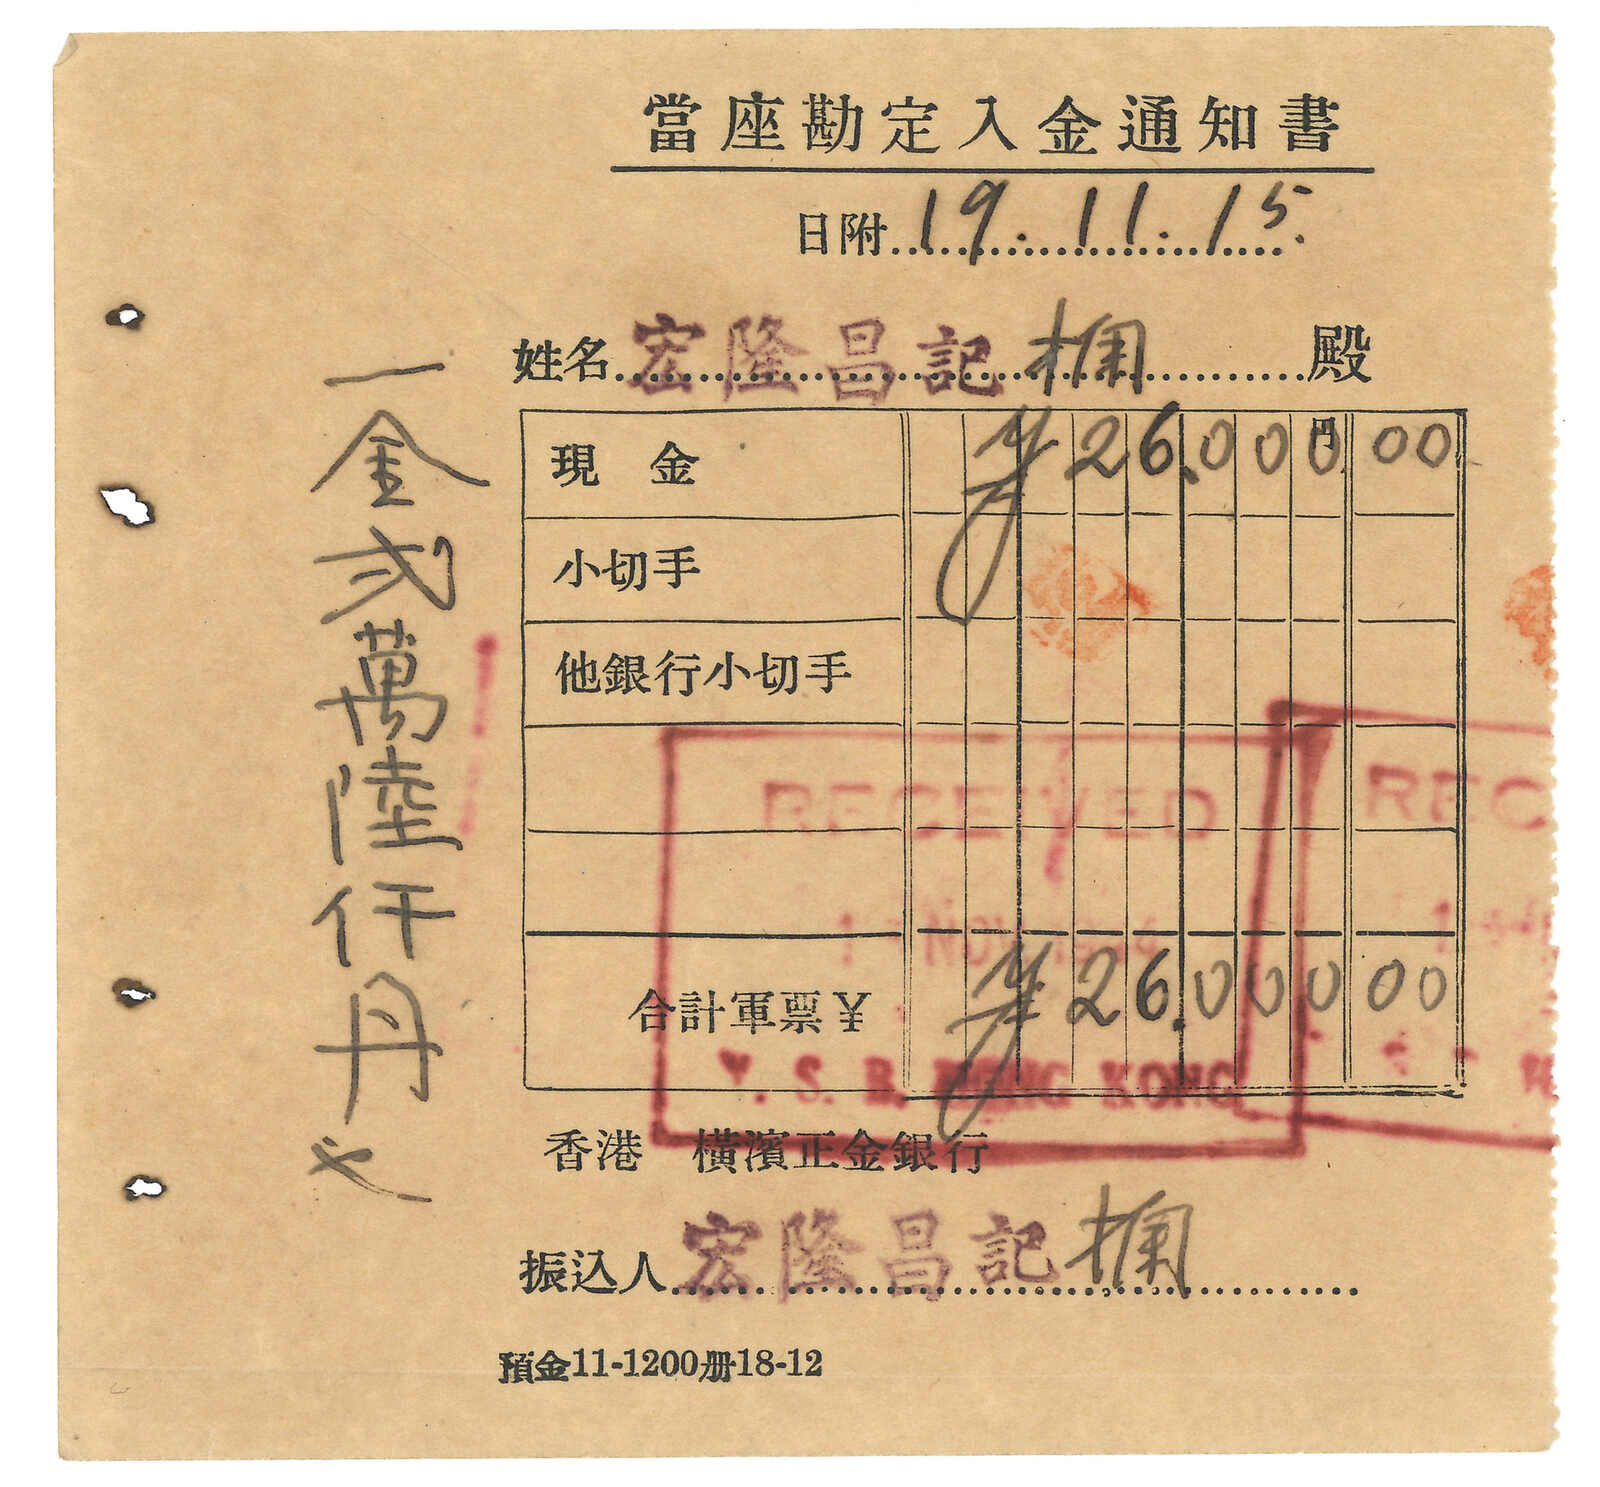 當座勘定入金通知書
日附 19.11.15.
姓名 宏隆昌記欄 殿
現金 ¥26.000円 00
小切手
他銀行小切手
合計軍票¥ ¥26.000 00
香港 橫濱正金銀行
振込人 宏隆昌記欄
預金11-1200册18-12
一金弍萬陸仟円也
RECEIVED
NOV
Y. S. B. HONG KONG
REC